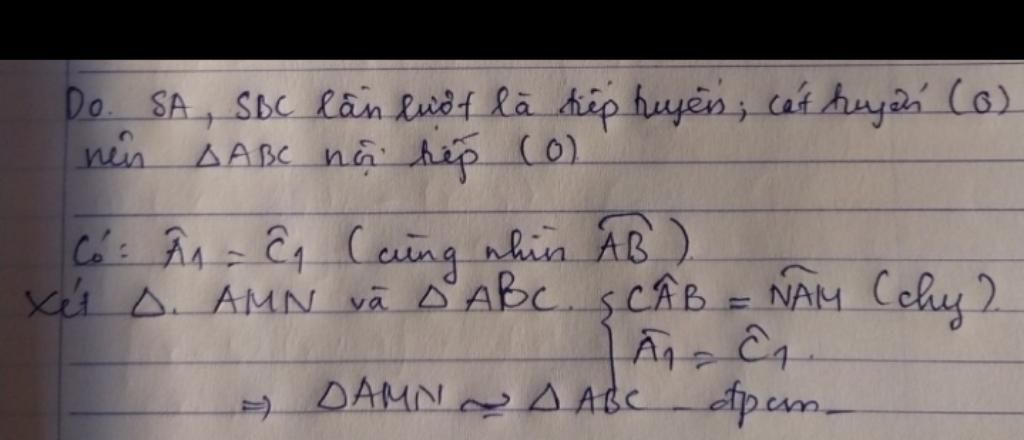 Do. SA, SBC lần lượt là tiếp tuyến; cát tuyến (O)
nên △ABC nội tiếp (O)
Có: Â1 = Ĉ1 (cùng nhìn AB)
Xét △. AMN và △ABC. { CÂB = NÂM (chg).
Â1 = Ĉ1.
⇒ △AMN ∽ △ABC - đpcm -